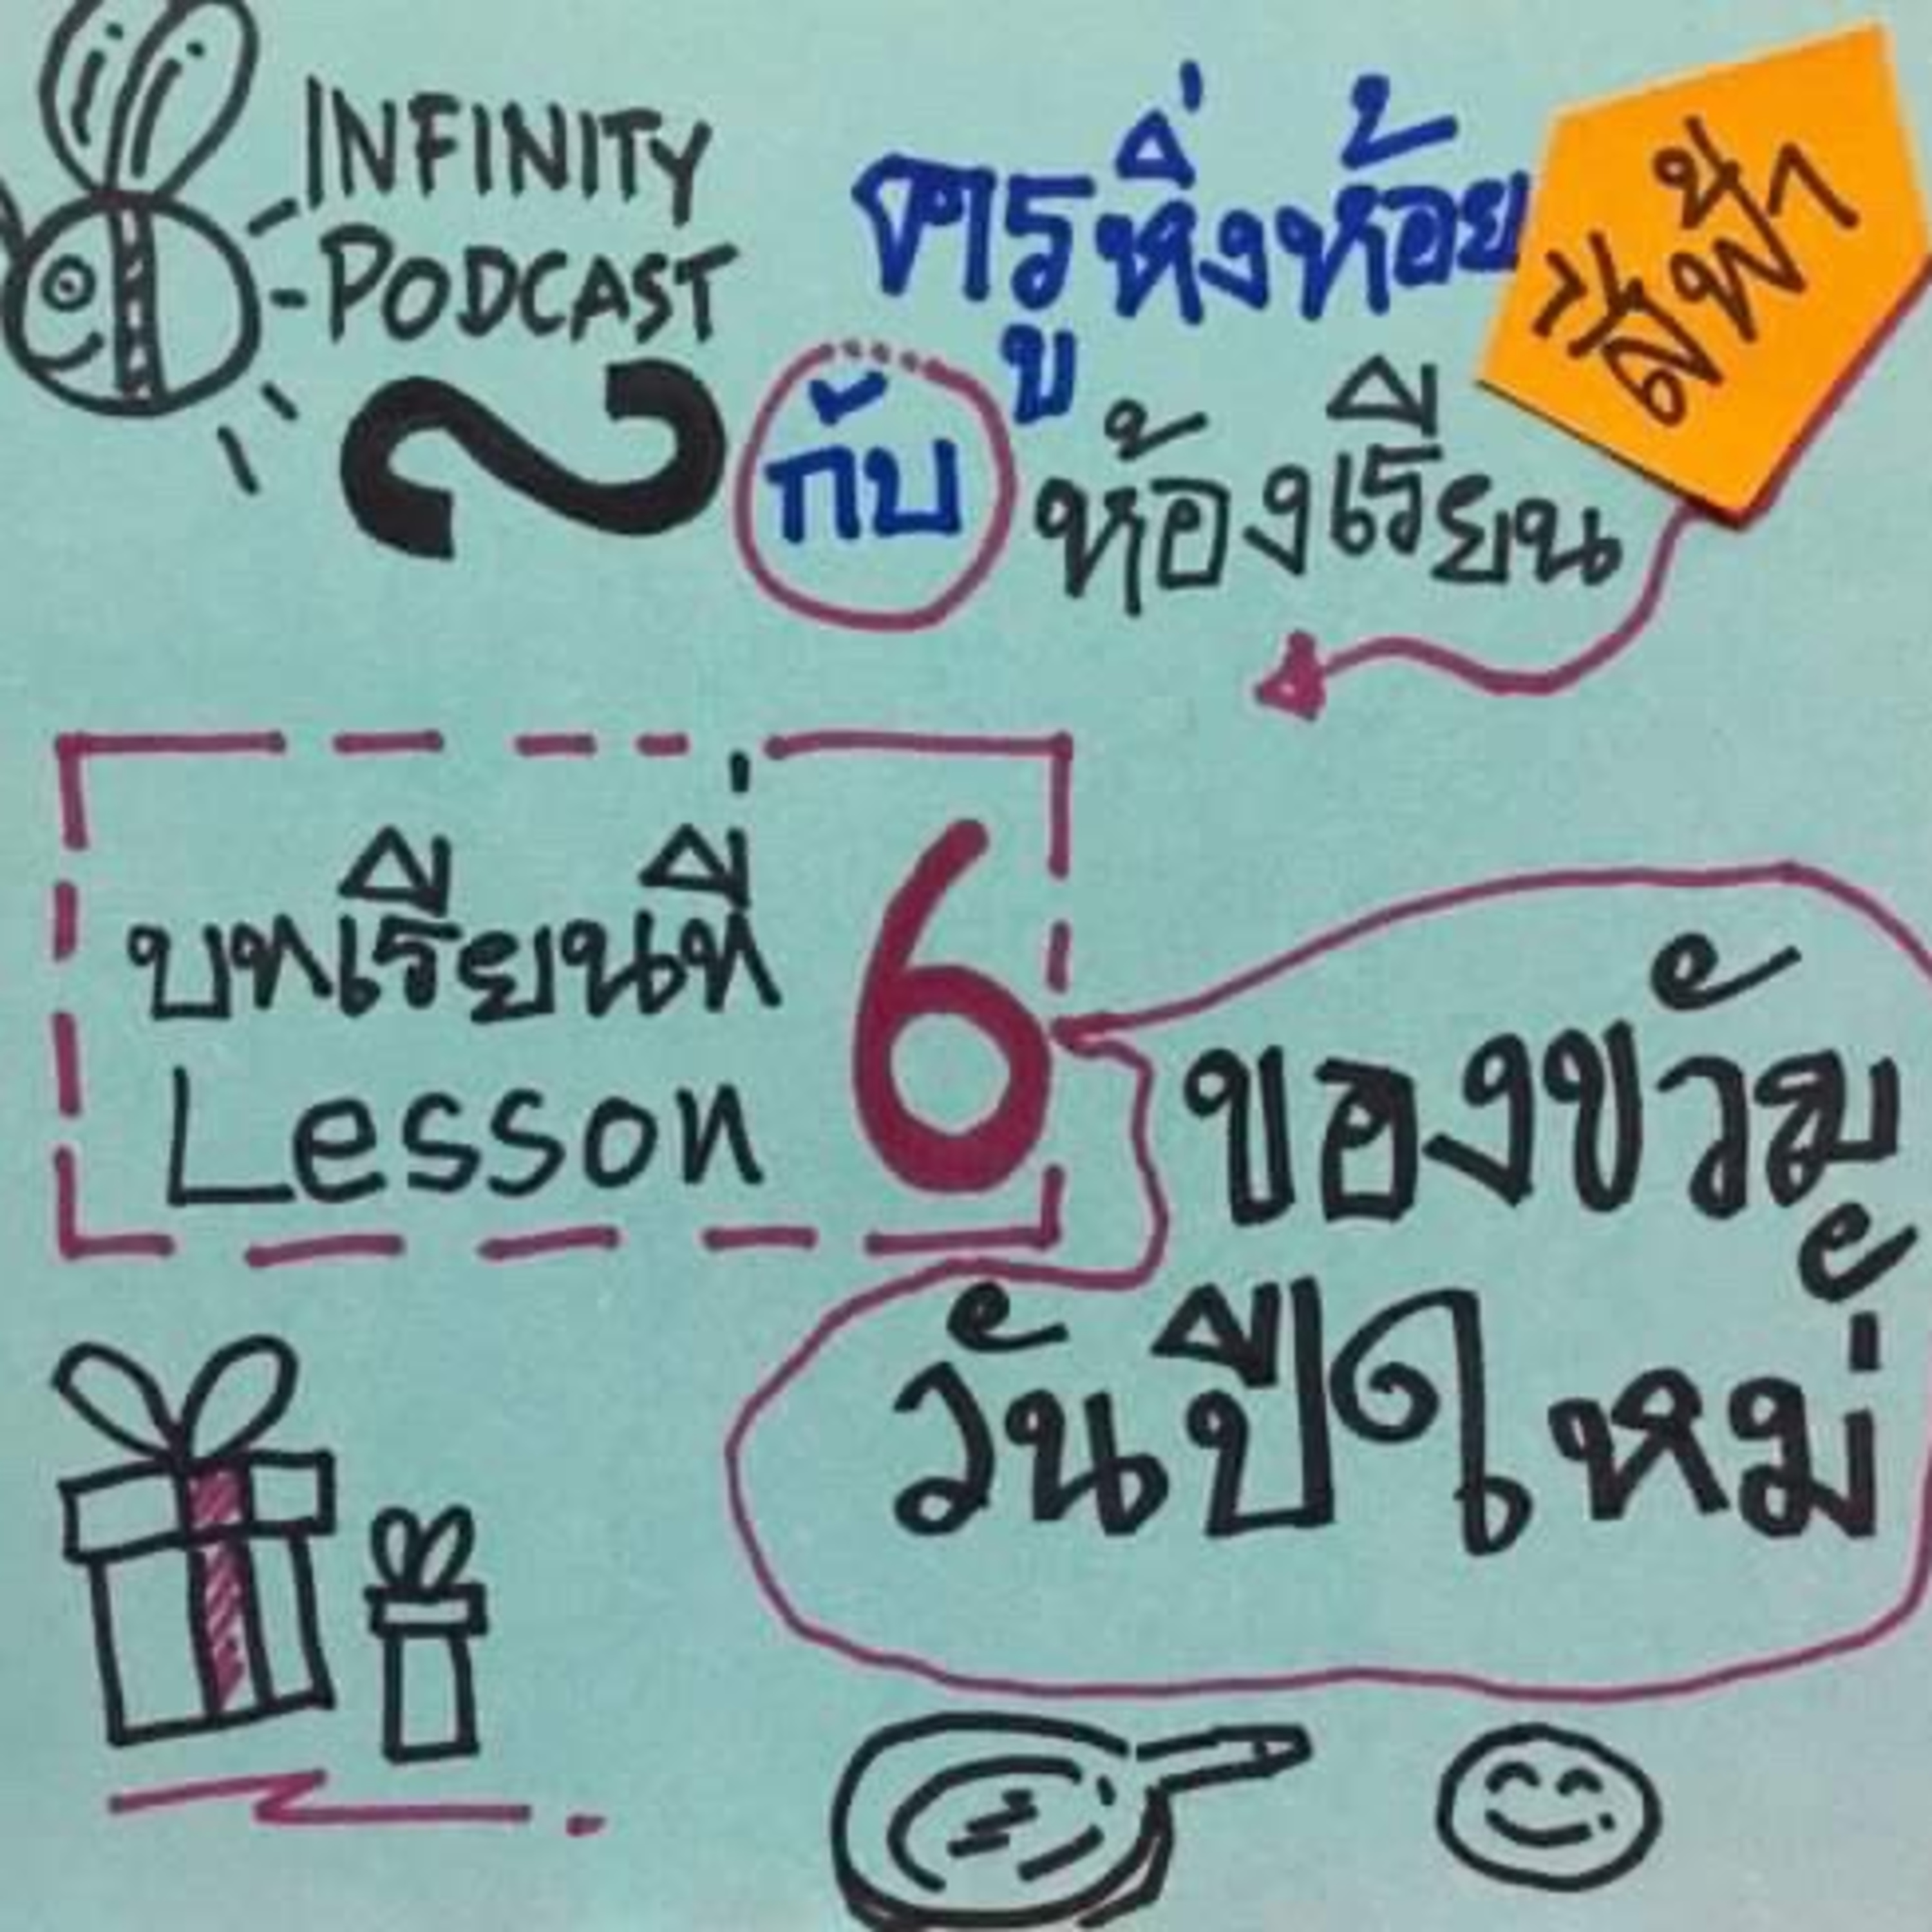 INFINITY
PODCAST
ครูหิ่งห้อย
กับ ห้องเรียน
สีฟ้า
บทเรียนที่ 6
Lesson
ของขวัญ
วันปีใหม่